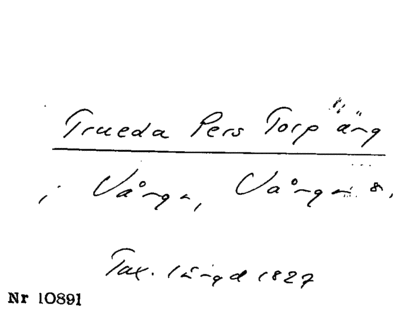 Trueda Pers Torp äng
i Vånga, Vånga s.
Tax. längd 1827
Nr 10891